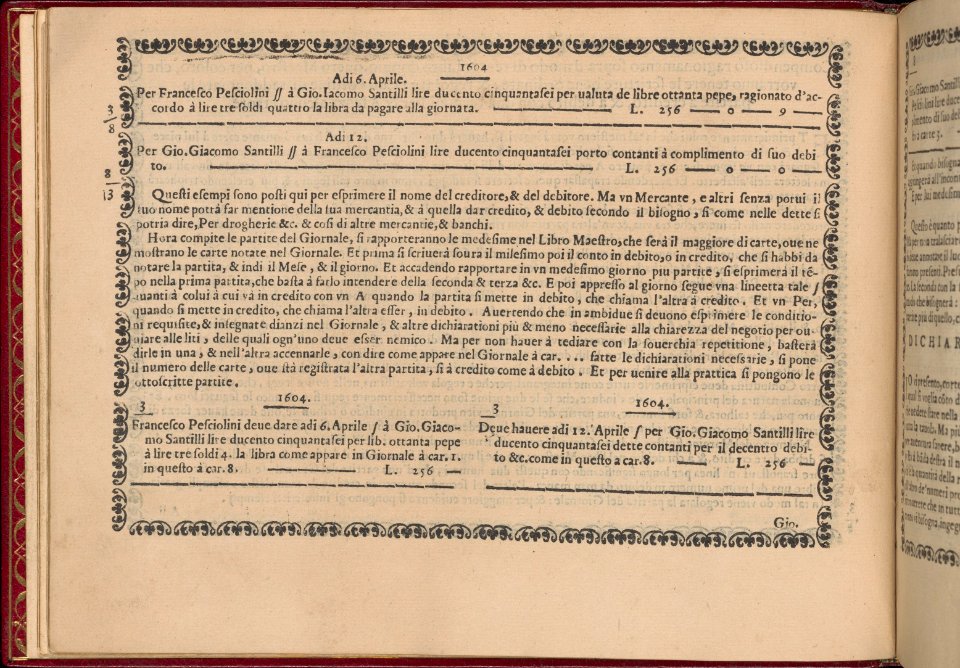 1604
Adi 6. Aprile.
Per Francesco Pesciolini ʃʃ à Gio. Iacomo Santilli lire ducento cinquantasei per ualuta de libre ottanta pepe, ragionato d'ac-
cordo à lire tre soldi quattro la libra da pagare alla giornata. L. 256 — 0 — 9 —
3
8
Adi 12.
Per Gio. Giacomo Santilli ʃʃ à Francesco Pesciolini lire ducento cinquantasei porto contanti à complimento di suo debi
to. L. 256 — 0 — 0 —
8
13
Questi esempi sono posti qui per esprimere il nome del creditore, & del debitore. Ma vn Mercante, e altri senza porui il
suo nome potrà far mentione della sua mercantia, & à quella dar credito, & debito secondo il bisogno, si come nelle dette si
potria dire, Per drogherie &c. & cosi di altre mercantie, & banchi.
Hora compite le partite del Giornale, si rapporteranno le medesime nel Libro Maestro, che serà il maggiore di carte, oue ne
mostrano le carte notate nel Giornale. Et prima si scriuerà soura il milesimo poi il conto in debito, o in credito, che si habbi da
notare la partita, & indi il Mese, & il giorno. Et accadendo rapportare in vn medesimo giorno piu partite, si esprimerà il tē-
po nella prima partita, che basta à farlo intendere della seconda & terza &c. E poi appresso al giorno segue vna lineetta tale ʃ
inanti à colui à cui và in credito con vn A quando la partita si mette in debito, che chiama l'altra à credito. Et vn Per,
quando si mette in credito, che chiama l'altra esser, in debito. Auertendo che in ambidue si deuono esprimere le conditio-
ni requisite, & insegnate dianzi nel Giornale, & altre dichiarationi più & meno necessarie alla chiarezza del negotio per ou-
uiare alle liti, delle quali ogn'uno deue esser nemico. Ma per non hauer à tediare con la souerchia repetitione, basterà
dirle in una, & nell'altra accennarle, con dire come appare nel Giornale à car. . . . fatte le dichiarationi necessarie, si pone
il numero delle carte, oue stà registrata l'altra partita, sì à credito come à debito. Et per uenire alla prattica si pongono le
sottoscritte partite.
1604.
3
Francesco Pesciolini deue dare adi 6. Aprile ʃ à Gio. Giaco-
mo Santilli lire ducento cinquantasei per lib. ottanta pepe
à lire tre soldi 4. la libra come appare in Giornale à car. 1.
in questo à car. 8. L. 256 —
1604.
3
Deue hauere adi 12. Aprile ʃ per Gio. Giacomo Santilli lire
ducento cinquantasei dette contanti per il decentro debi-
to &c. come in questo à car. 8. L. 256 —
Gio.